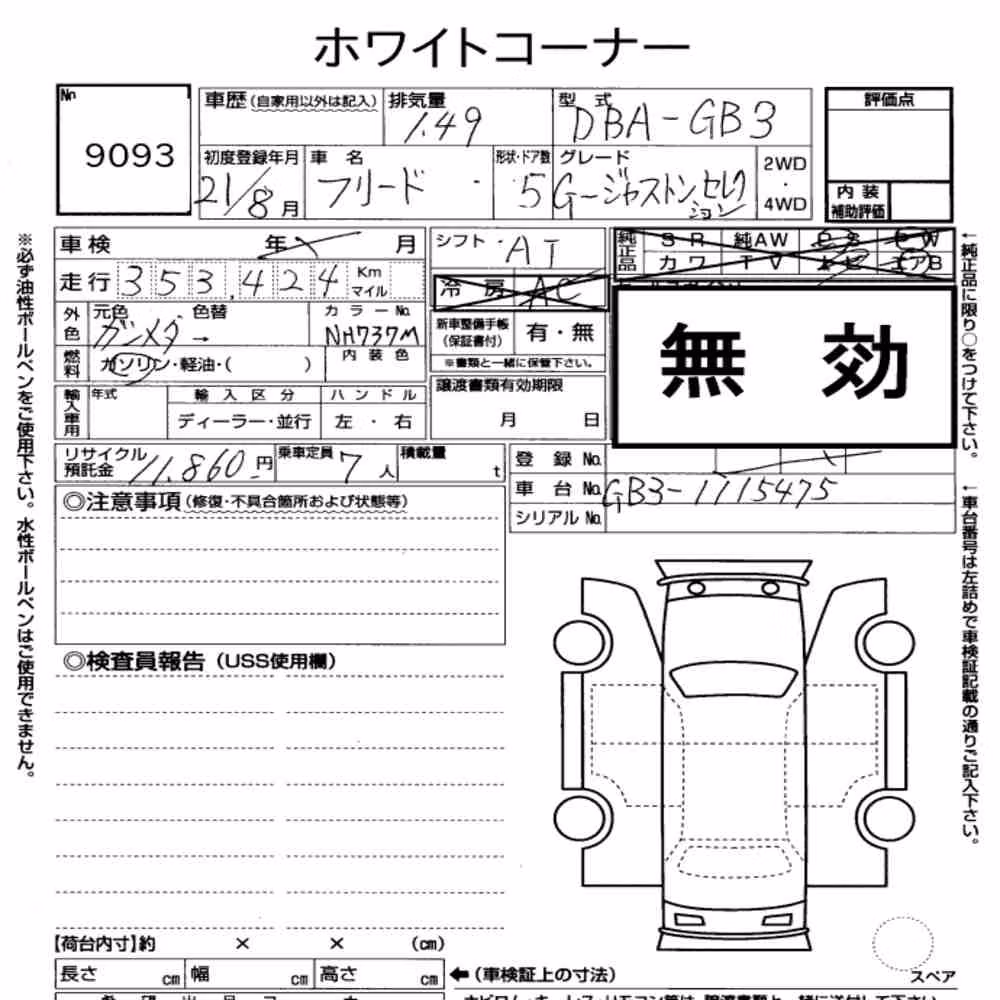 ホワイトコーナー
No
9093
車歴(自家用以外は記入)
排気量
1.49
型式
DBA-GB3
評価点
初度登録年月
21/8月
車名
フリード
形状・ドア数
5
グレード
G-ジャストンセレクション
2WD
・
4WD
内装
補助評価
車検 年 月
シフト・
AT
純正品
SR 純AW PS PW
カワ TV ナビ エアB
走行 353,424 Km
マイル
冷房 AC
外色
元色 色替
ガンメタ→
カラーNo.
NH737M
新車整備手帳
(保証書付)
有・無
※書類と一緒に保管下さい。
無効
燃料
ガソリン・軽油・( )
内装色
譲渡書類有効期限
月 日
輸入車用
年式
輸入区分
ディーラー・並行
ハンドル
左・右
リサイクル
預託金
11,860円
乗車定員
7人
積載量
t
登録No.
車台No.
GB3-1115475
シリアルNo.
◎注意事項(修復・不具合箇所および状態等)
◎検査員報告(USS使用欄)
【荷台内寸】約 × × (cm)
長さ cm 幅 cm 高さ cm
←(車検証上の寸法)
スペア
※必ず油性ボールペンをご使用下さい。水性ボールペンはご使用できません。
←純正品に限り○をつけて下さい。
←車台番号は左詰めで車検証記載の通りご記入下さい。